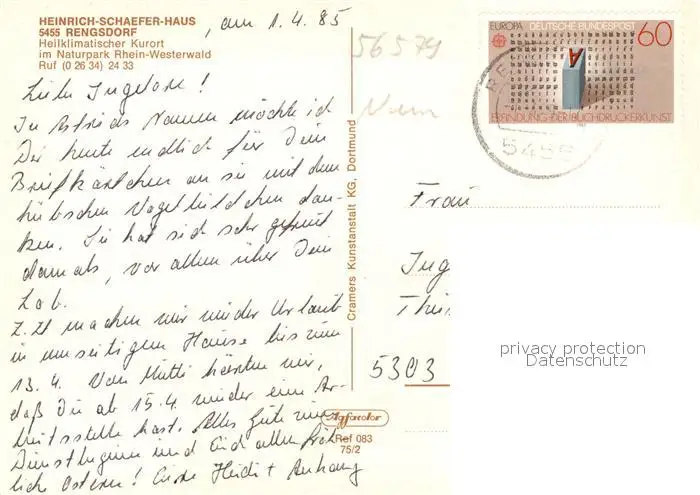 HEINRICH-SCHAEFER-HAUS
5455 RENGSDORF
Heilklimatischer Kurort
im Naturpark Rhein-Westerwald
Ruf (0 26 34) 24 33
, am 1.4.85
Liebe Ingelore!
In Astrids Namen möchte ich
Dir heute endlich für Dein
Briefkärtchen an sie mit dem
hübschen Vogelbildchen dan-
ken. Sie hat sich sehr gefreut
damals, vor allem über Dein
Lob.
Z.Zt machen wir wieder Urlaub
in umseitigem Hause bis zum
13.4. Von Mutti hörten wir,
daß Du ab 15.4. wieder eine Ar-
beitsstelle hast. Alles Gute zum
Dienstbeginn und Euch allen fröh-
liche Ostern! Eure Heidi + Anhang
Cramers Kunstanstalt KG, Dortmund
56579
EUROPA DEUTSCHE BUNDESPOST 60
ERFINDUNG DER BUCHDRUCKERKUNST
5455
Frau
Ing
5303
Agfacolor
Ref 083
75/2
privacy protection
Datenschutz